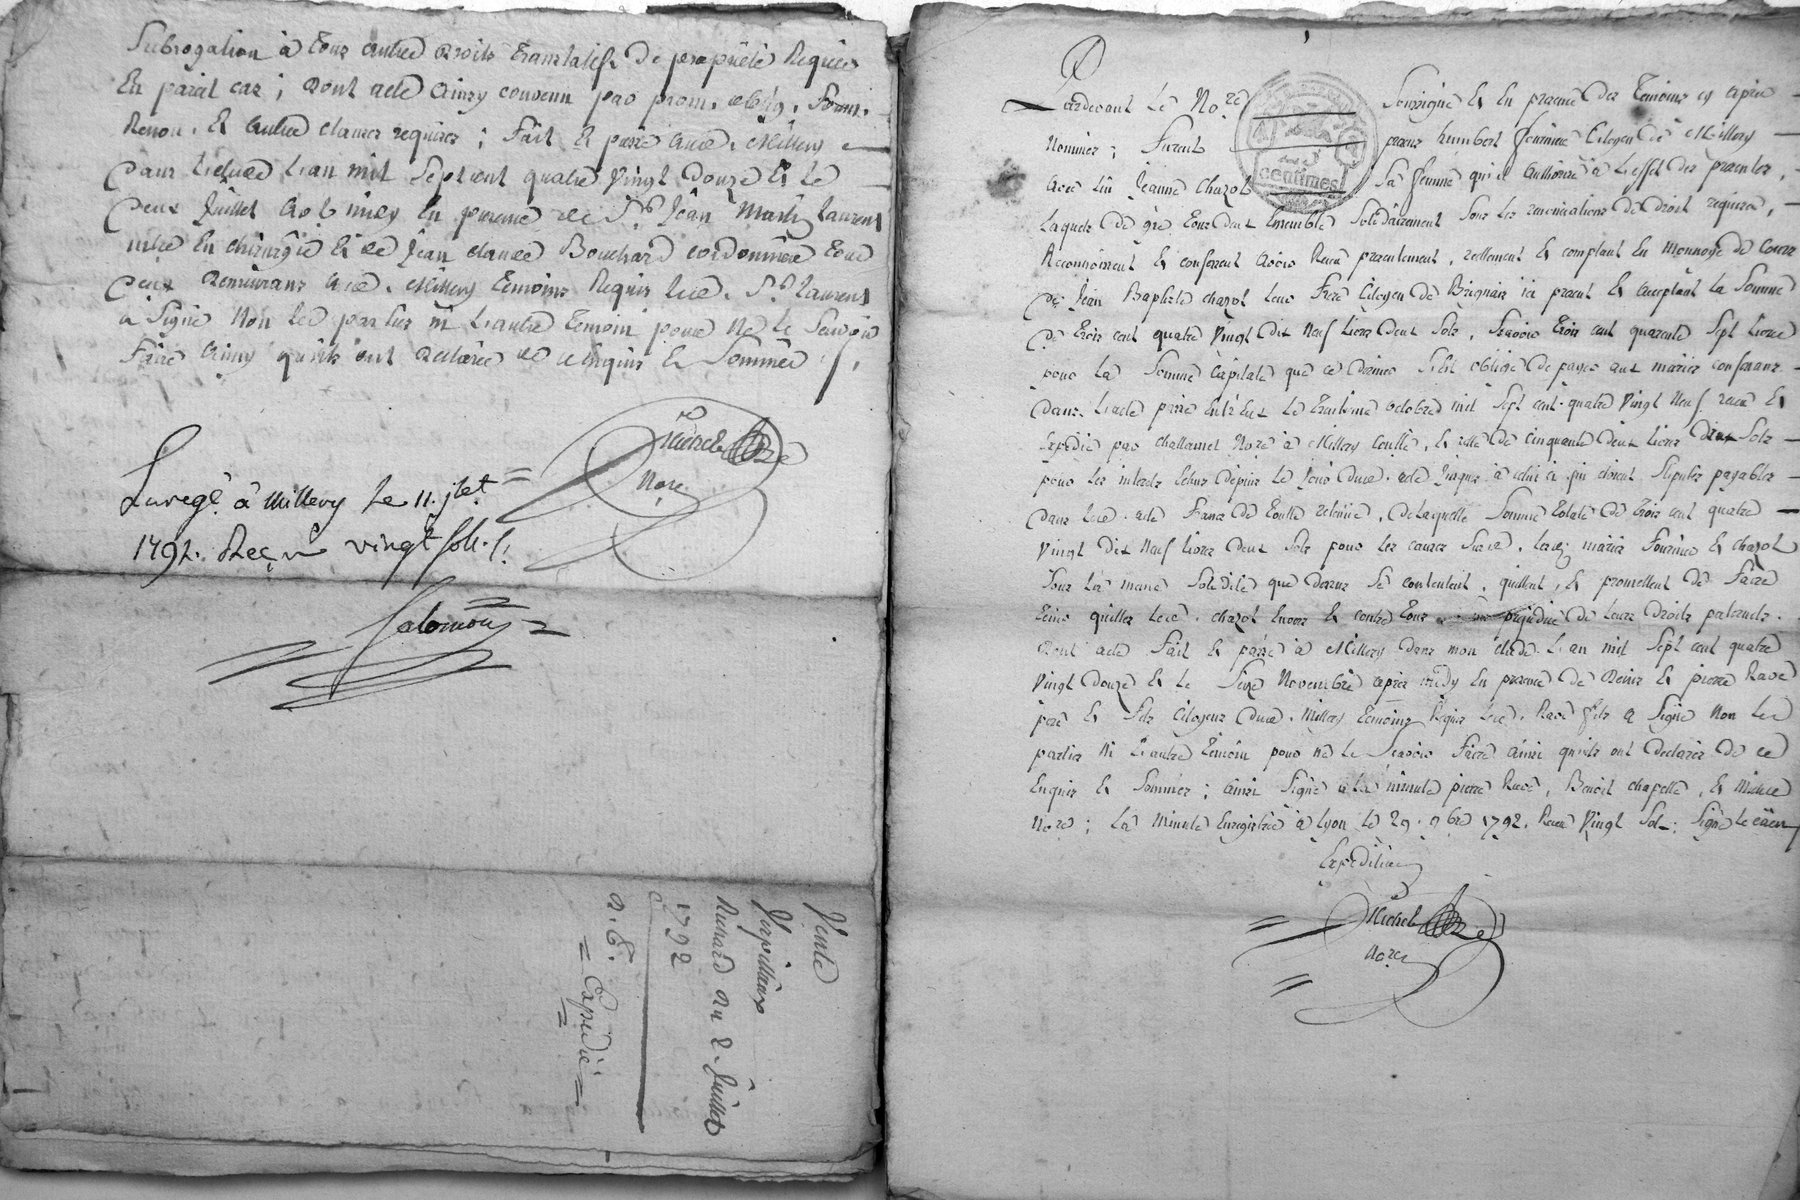 Subrogation à tous autre droits translatifs de propriété Requises
En pareil cas ; dont acte Ainsy convenu par prom. oblig. Soum.
Renon. Et autre clauses requises ; fait Et passé aud. Millery
dans L'etude L'an mil Sept cent quatre vingt Douze Et le
deux Juillet avt. midy En presence de Sr. Jean Laurent
mtre En chirurgie Et de Jean claude Bouchard cordonnier tous
deux demeurans aud. Millery temoins Requis led. Sr. Laurent
à Signé Non les parties ni L'autre temoin pour Ne le Scavoir
faire Ainsy qu'ils ont declaré de ce Enquis & Sommés
Nore.
Enregé. à Millery Le 11. jlet
1792. Reçu vingt Sols.
Salomon
Vente
Verpillieux
Richard du 2. Juillet
1792
Expedié
Pardevant Le Nore. Soussigné Et En presence des Temoins cy après
Nommés ; Furent presens humbert fournier Citoyen de Millery
avec lui Jeanne Chazot Sa femme qu'il Authorise à L'effet des presentes,
Laquels de gré tous deux Ensemble Solidairement Sous les renonciations de Droit requises,
Reconnoissent Et confessent Avoir Reçu presentement, reellement Et comptant En Monnoye de Cours
de Jean Baptiste chazot leur frere Citoyen de Brignais ici present Et acceptant La Somme
de trois cent quatre vingt dix Neuf Livres deux Sols, Scavoir trois cent quarente Sept Livres
pour La Somme Capitale que ce dernier S'est obligé de payer aux mariés confessans
dans L'acte passé Entr'Eux Le trentième octobre mil Sept cent quatre vingt Neuf reçu Et
Expedié par challamel Nore à Millery Et celle de cinquante deux Livres deux Sols
pour les interets Echus depuis Le Jour dud. acte Jusques à celui ci qui etoient Stipulés payables
dans led. acte francs de toutte retenue, de Laquelle Somme totale de trois cent quatre
vingt dix Neuf Livres deux Sols pour les causes Susd. lesd. mariés fournier Et chazot
Sous La meme Solidité que dessus Se contentent, quittent, Et promettent de faire
tenir quitte led. chazot Envers Et contre tous prejudice de leurs Droits paternels.
Dont acte fait Et passé à Millery dans mon Etude L'an mil Sept cent quatre
vingt douze Et Le Seize Novembre après midy En presence de Denis Et pierre Ravé
pere Et fils Citoyens dud. Millery temoins Requis led. Ravé fils a Signé Non les
parties Ni L'autre temoin pour Ne le Scavoir faire ainsi qu'ils ont declarés de ce
Enquis Et Sommés ; Ainsi Signé à La minute pierre Ravé, Benoit chapelle, Et
Nore ; La Minute Enregistrée à Lyon Le 29. 9bre 1792. Reçu vingt Sols ; Signé
Expedition
Nore.
centimes